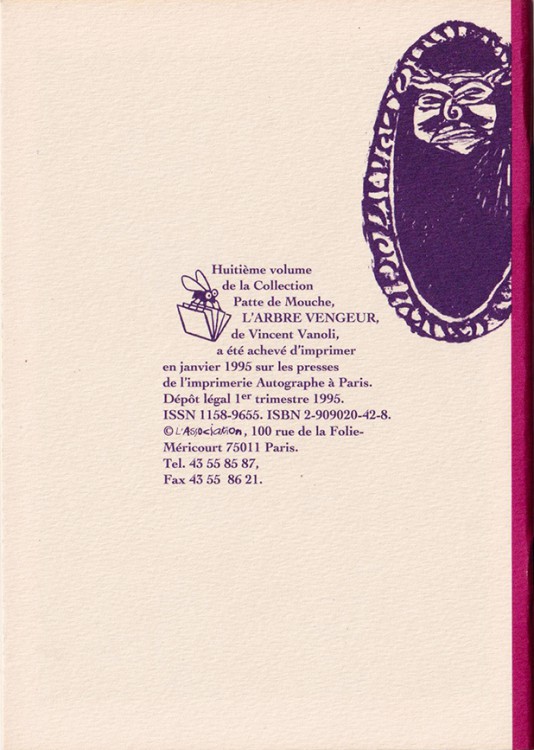 Huitième volume
de la Collection
Patte de Mouche,
L'ARBRE VENGEUR,
de Vincent Vanoli,
a été achevé d'imprimer
en janvier 1995 sur les presses
de l'imprimerie Autographe à Paris.
Dépôt légal 1er trimestre 1995.
ISSN 1158-9655. ISBN 2-909020-42-8.
© L'ASSOCIATION, 100 rue de la Folie-
Méricourt 75011 Paris.
Tel. 43 55 85 87,
Fax 43 55 86 21.